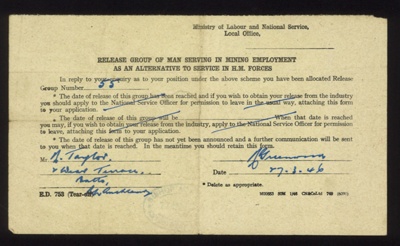 Ministry of Labour and National Service,
Local Office,
RELEASE GROUP OF MAN SERVING IN MINING EMPLOYMENT
AS AN ALTERNATIVE TO SERVICE IN H.M. FORCES
In reply to your inquiry as to your position under the above scheme you have been allocated Release
Group Number 55
* The date of release of this group has been reached and if you wish to obtain your release from the industry
you should apply to the National Service Officer for permission to leave in the usual way, attaching this form
to your application.
* The date of release of this group will be When that date is reached
you may, if you wish to obtain your release from the industry, apply to the National Service Officer for permission
to leave, attaching this form to your application.
* The date of release of this group has not yet been announced and a further communication will be sent
to you when that date is reached. In the meantime you should retain this form.
Mr. Taylor, Greenwood
Terrace, Date 27.3.46
Batts,
* Delete as appropriate.
E.D. 753 (Tear-off)